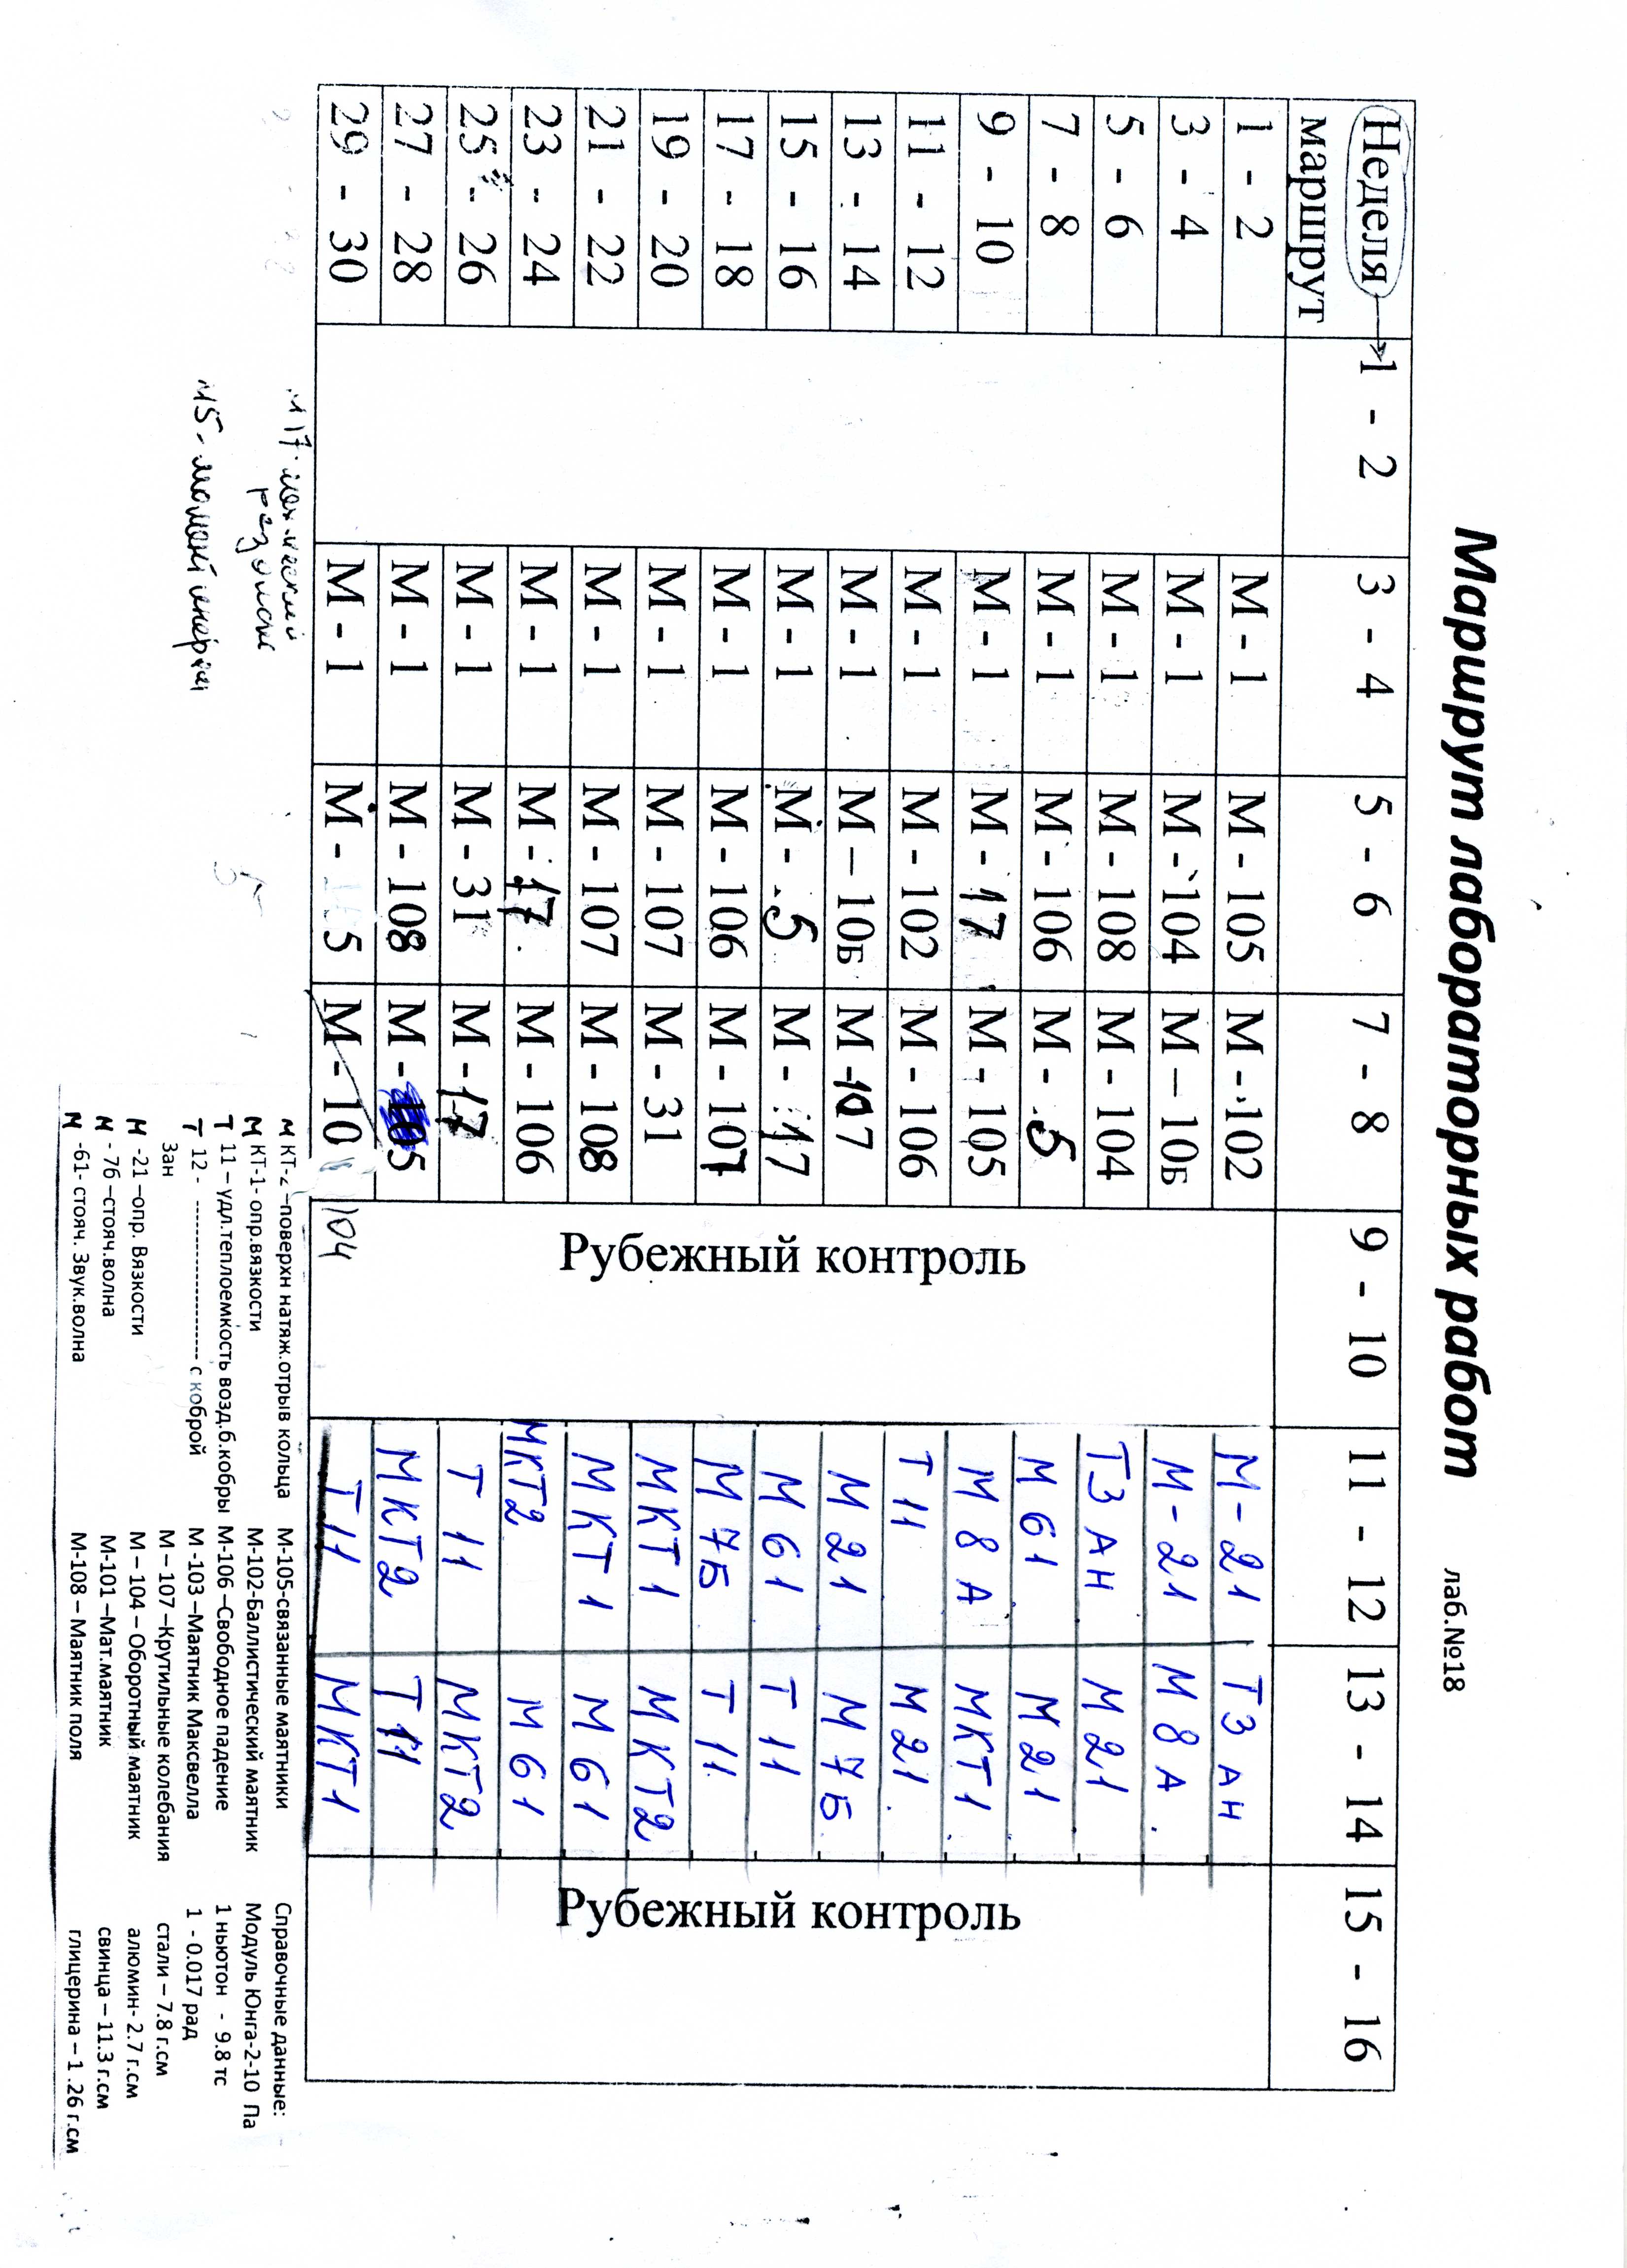 Маршрут лабораторных работ лаб.№18
Неделя 1 - 2 3 - 4 5 - 6 7 - 8 9 - 10 11 - 12 13 - 14 15 - 16
маршрут
1 - 2 М - 1 М - 105 М - 102 М - 21 Т3 АН
3 - 4 М - 1 М - 104 М – 10Б М - 21 М 8 А
5 - 6 М - 1 М - 108 М - 104 Т3 АН М 21
7 - 8 М - 1 М - 106 М - 5 М 61 М 21
9 - 10 М - 1 М - 17 М - 105 М 8 А МКТ1
11 - 12 М - 1 М - 102 М - 106 Т 11 М 21
13 - 14 М - 1 М – 10Б М -107 М 21 М 7Б
15 - 16 М - 1 М - 5 М - 17 М 61 Т 11
17 - 18 М - 1 М - 106 М - 107 М 7Б Т 11
19 - 20 М - 1 М - 107 М - 31 МКТ1 МКТ2
21 - 22 М - 1 М - 107 М - 108 МКТ1 М 61
23 - 24 М - 1 М - 17 М - 106 МКТ2 М 61
25 - 26 М - 1 М - 31 М -17 Т 11 МКТ2
27 - 28 М - 1 М - 108 М - 105 МКТ2 Т 11
29 - 30 М - 1 М - 5 М - 10 104 Т11 МКТ1
Рубежный контроль
Рубежный контроль
М17-
М5- момент инерции
5
М КТ-2 –поверхн натяж.отрыв кольца
М КТ-1- опр.вязкости
Т 11 – удл.теплоемкость возд.б.кобры
Т 12 - ---------------------- с коброй
3ан
М -21 –опр. Вязкости
М - 7б –стояч.волна
М -61- стояч. Звук.волна
М-105-связанные маятники
М-102-Баллистический маятник
М-106 –Свободное падение
М -103 –Маятник Максвелла
М – 107 –Крутильные колебания
М – 104 – Оборотный маятник
М-101 –Мат.маятник
М-108 – Маятник поля
Справочные данные:
Модуль Юнга-2-10 Па
1 ньютон - 9.8 тс
1 - 0.017 рад
стали – 7.8 г.см
алюмин- 2.7 г.см
свинца – 11.3 г.см
глицерина – 1 .26 г.см